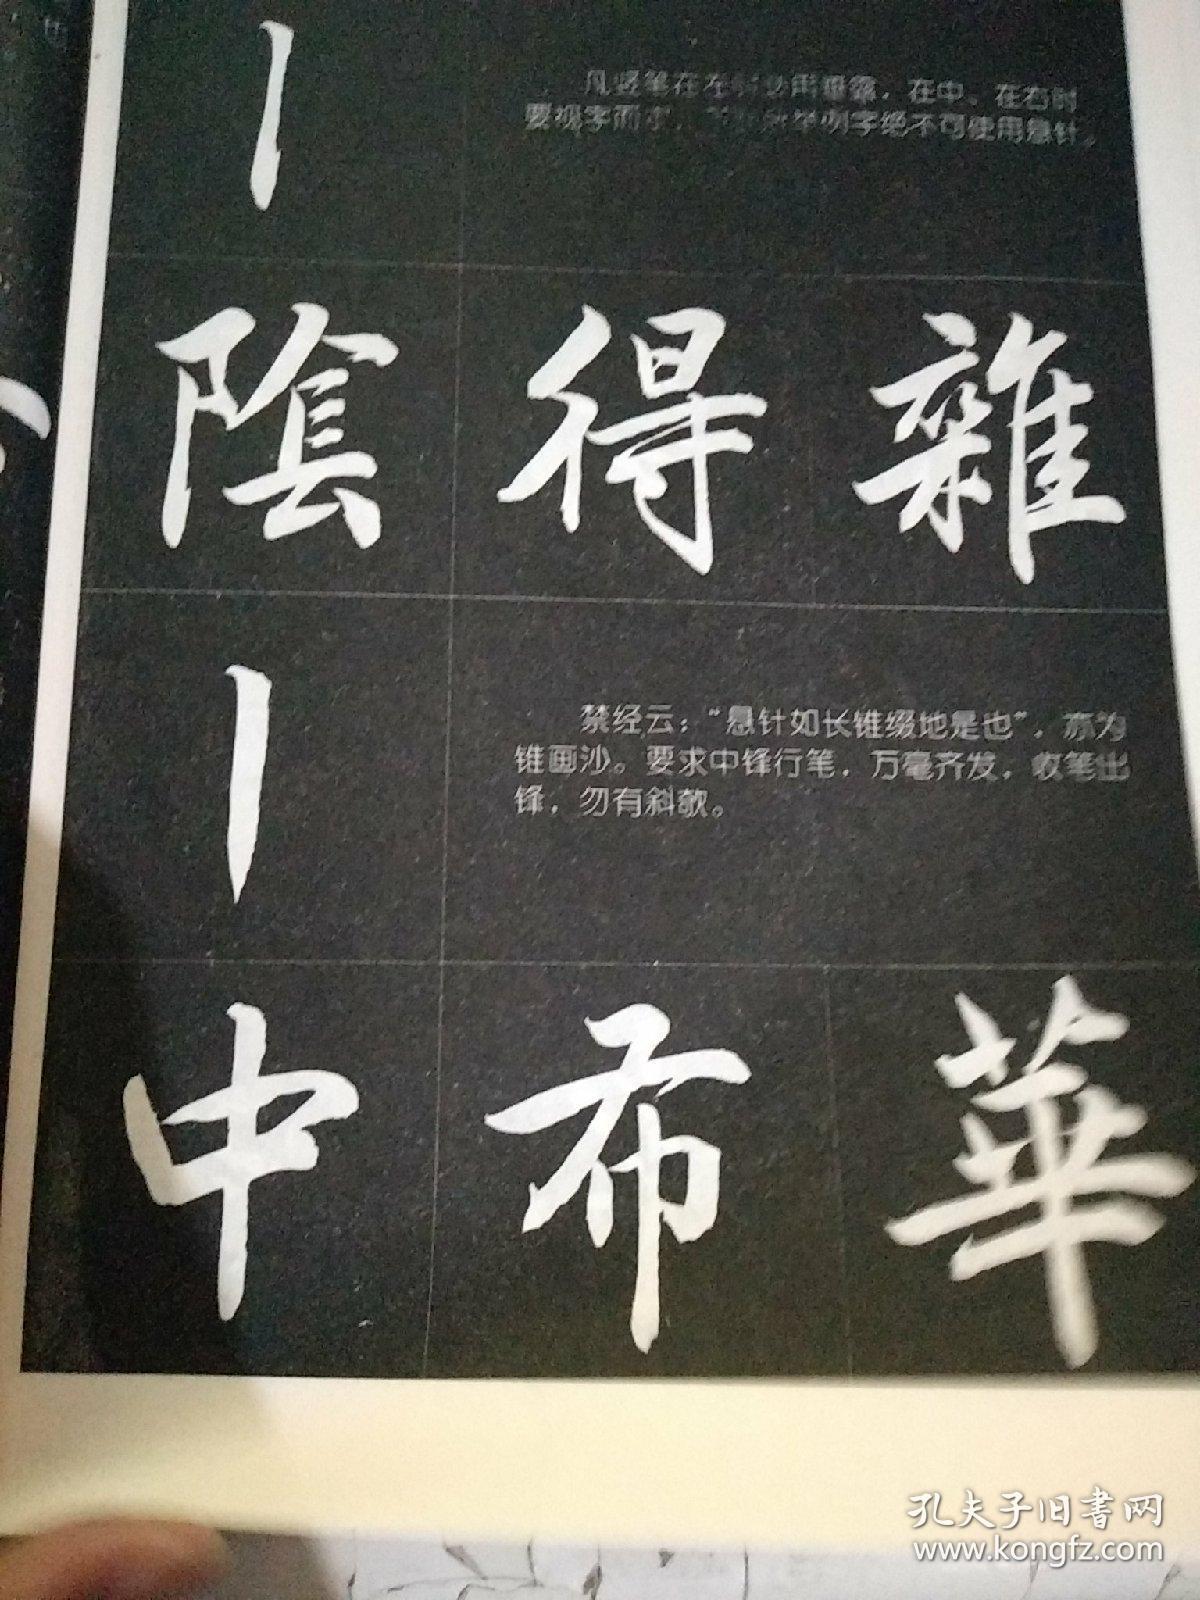 凡竖笔在左时必用垂露，在中、在右时
要视字而定，
举例字绝不可使用悬针。
陰 得 雜
禁经云：“悬针如长锥缀地是也”，亦为
锥画沙。要求中锋行笔，万毫齐发，收笔出
锋，勿有斜欹。
中 布 華
孔夫子旧书网
www.kongfz.com